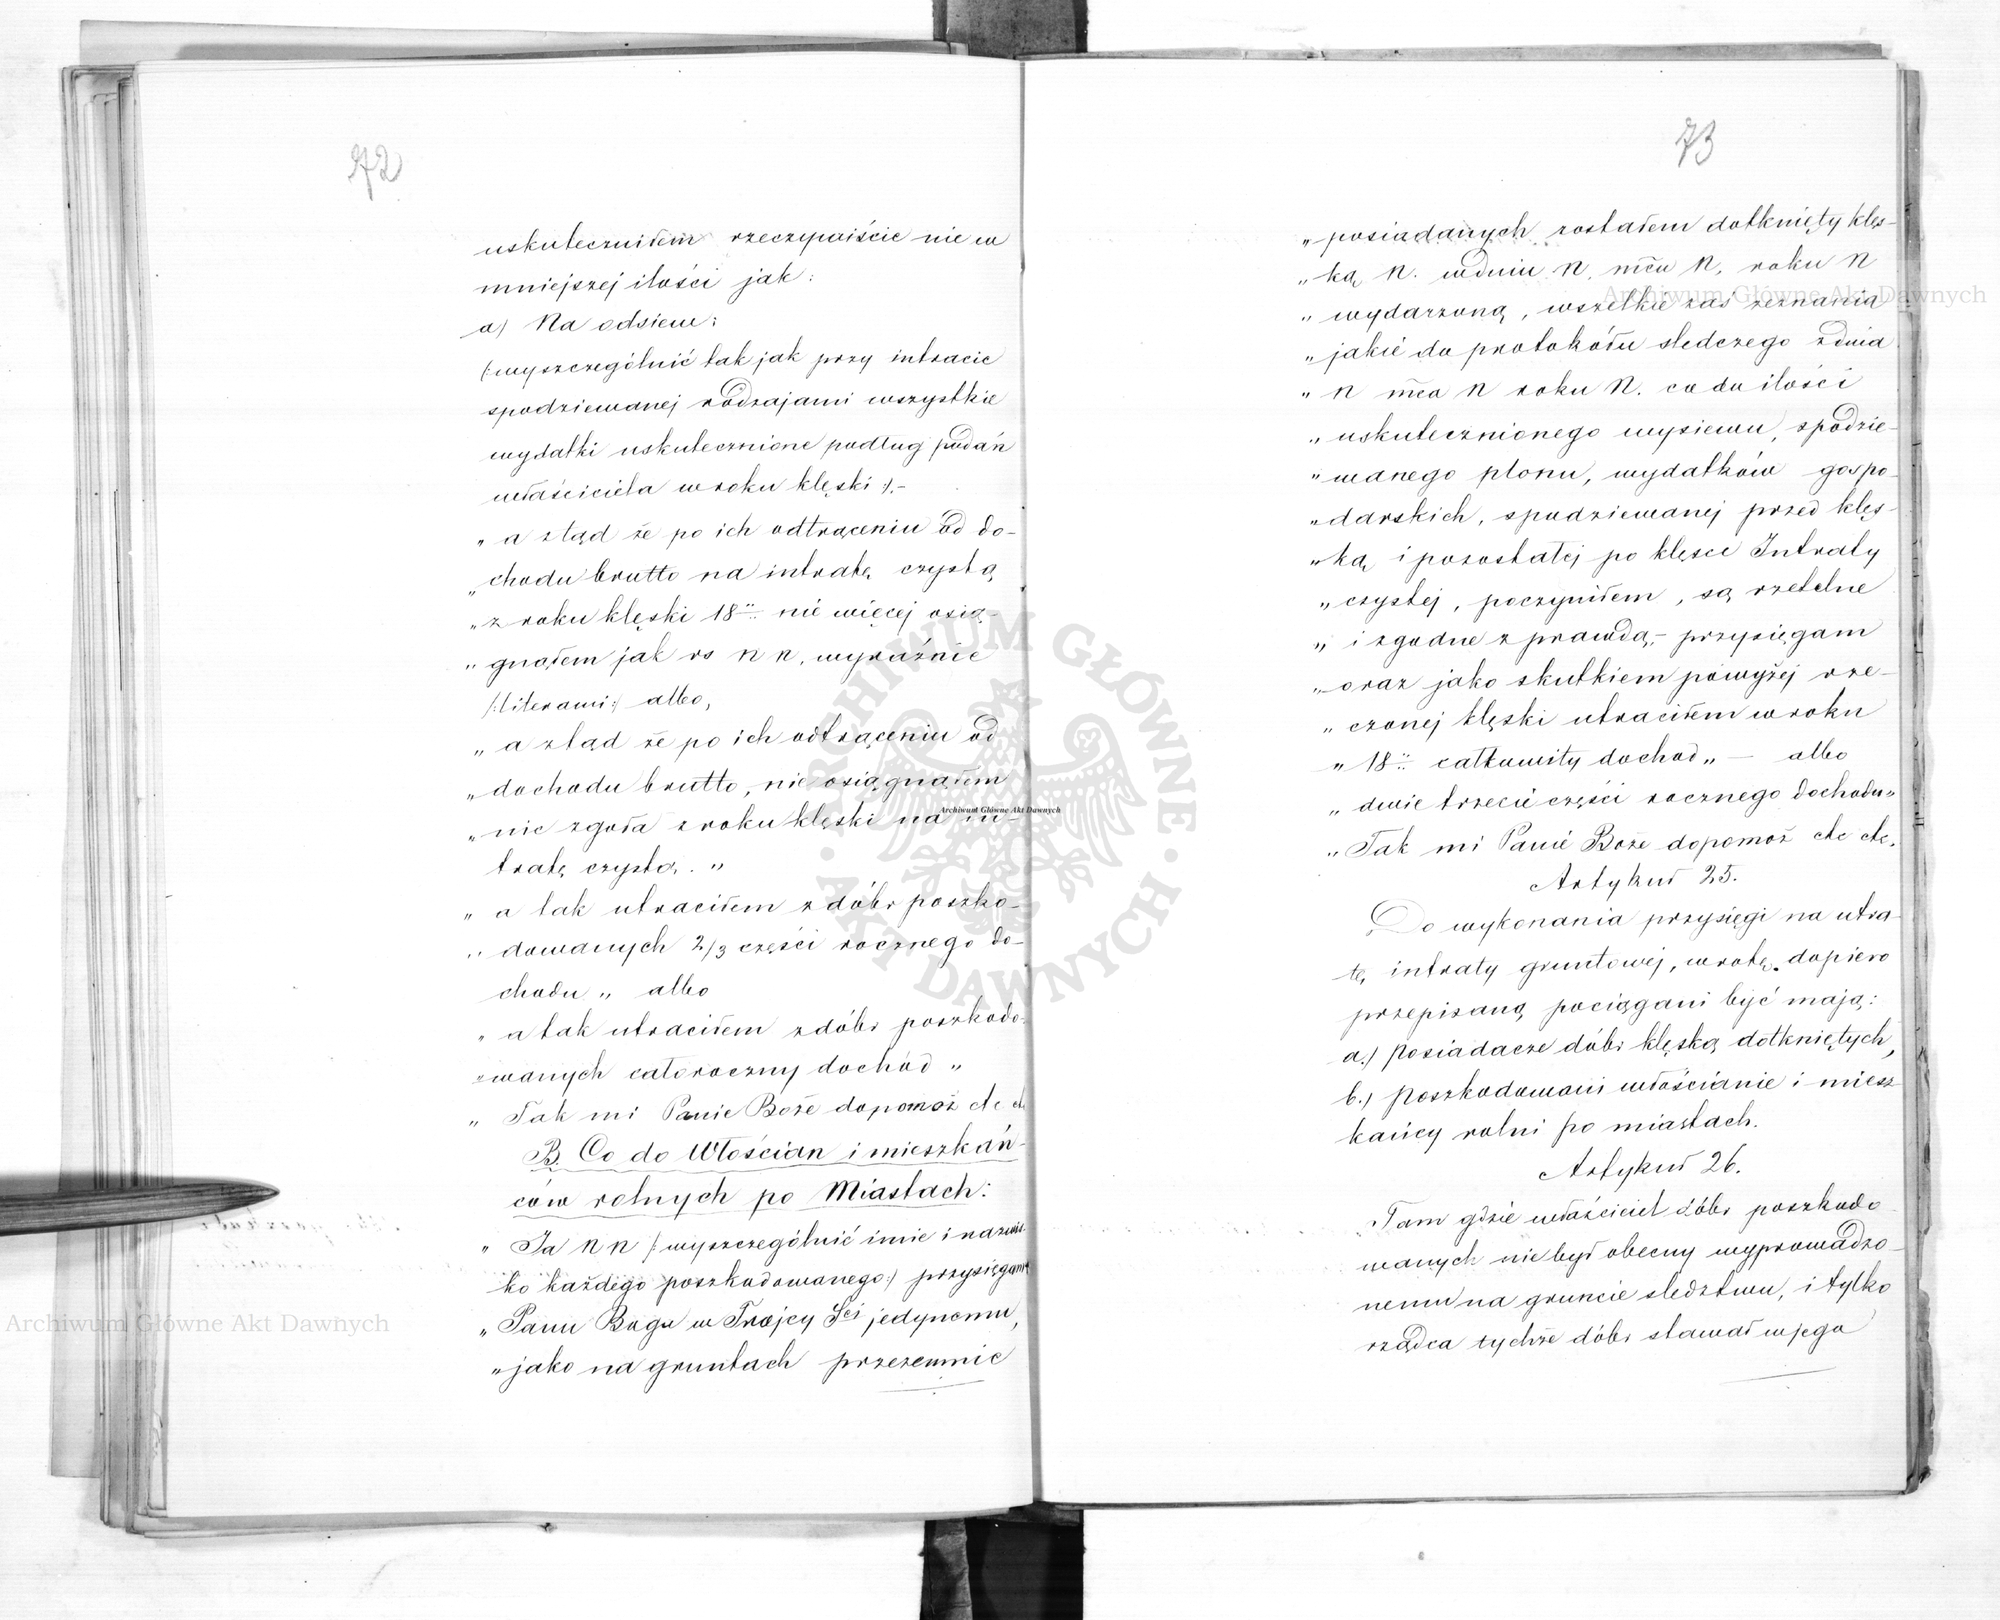 72
uskuteczniłem rzeczywiście nie w
mniejszej ilości jak:
a) Na odsiew:
(:wyszczególnić tak jak przy intracie
spodziewanej rodzajami wszystkie
wydatki uskutecznione podług podań
właściciela w roku klęski:).-
„ a ztąd że po ich odtrąceniu od do-
„ chodu brutto na intratę czystą
„ z roku klęski 18.. nie więcej osią-
„ gnąłem jak rs N N, wyraźnie
/:literami:/ albo,
„ a ztąd że po ich odtrąceniu od
„ dochodu brutto, nie osiągnąłem
„ nic zgoła z roku klęski na in-
tratę czystą. „
„ a tak utraciłem z dóbr poszko-
„ dowanych 2/3 części rocznego do-
chodu „ albo
„ a tak utraciłem z dóbr poszkodo-
„ wanych całoroczny dochód „
„ Tak mi Panie Boże dopomóż etc etc
B. Co do Włościan i mieszkań-
ców rolnych po Miastach:
„ Ja N N /:wyszczególnić imie i nazwis-
ko każdego poszkodowanego:/ przysięgam
„ Panu Bogu w Trójcy Sci jedynemu,
„ jako na gruntach przezemnie
73
„ posiadanych zostałem dotknięty klęs-
„ ką N. w dniu N. mca N. roku N
„ wydarzoną, wszelkie zaś zeznania
„ jakie do protokółu sledczego z dnia
„ N mca N roku N. co do ilości
„ uskutecznionego wysiewu, spodzie-
„ wanego plonu, wydatków gospo-
„ darskich, spodziewanej przed klęs-
„ ką i pozostałej po klęsce Intraty
„ czystej, poczyniłem, są rzetelne
„ i zgodne z prawdą,- przysięgam
„ oraz jako skutkiem powyżej rze-
„ czonej klęski utraciłem w roku
„ 18.. całkowity dochod „ — albo
„ dwie trzecie części rocznego dochodu „
„ Tak mi Panie Boże dopomóż etc etc.
Artykuł 25.
Do wykonania przysięgi na utra-
tę intraty gruntowej, w rotę dopiero
przepisaną pociągani być mają:
a.) posiadacze dóbr klęską dotkniętych,
b.) poszkodowani włościanie i miesz-
kańcy rolni po miastach.
Artykuł 26.
Tam gdzie właściciel dóbr poszkodo-
wanych nie był obecny wyprowadzo-
nemu na gruncie sledztwu, i tylko
rządca tychże dóbr stawał w jego
Archiwum Główne Akt Dawnych
Archiwum Główne Akt Dawnych
Archiwum Główne Akt Dawnych
ARCHIWUM GŁÓWNE
AKT DAWNYCH